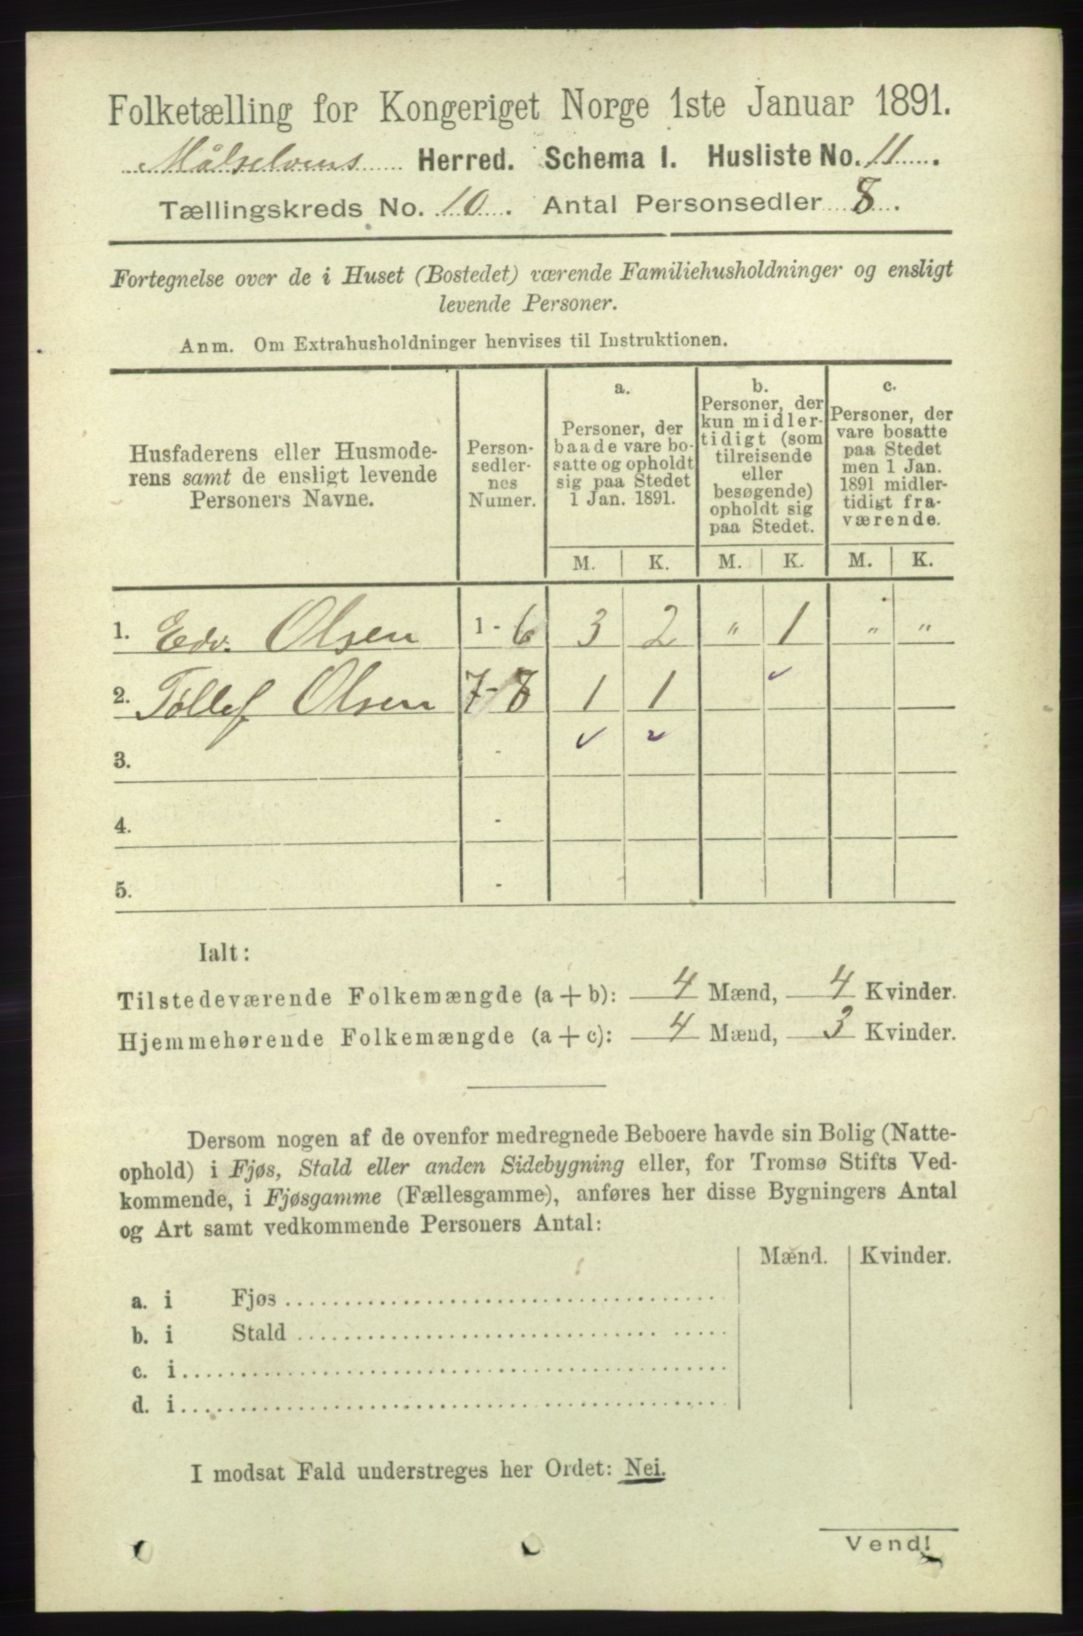 Folketælling for Kongeriget Norge 1ste Januar 1891.
Målselvens Herred. Schema I. Husliste No. 11.
Tællingskreds No. 10. Antal Personsedler 8.
Fortegnelse over de i Huset (Bostedet) værende Familiehusholdninger og ensligt
levende Personer.
Anm. Om Extrahusholdninger henvises til Instruktionen.
Husfaderens eller Husmode-
rens samt de ensligt levende
Personers Navne.
Person-
sedler-
nes
Numer.
a.
Personer, der
baade vare bo-
satte og opholdt
sig paa Stedet
1 Jan. 1891.
b.
Personer, der
kun midler-
tidigt (som
tilreisende
eller
besøgende)
opholdt sig
paa Stedet.
c.
Personer, der
vare bosatte
paa Stedet
men 1 Jan.
1891 midler-
tidigt fra-
værende.
M. K. M. K. M. K.
1. Edv. Olsen 1 - 6 3 2 " 1 " "
2. Tollef Olsen 7 - 8 1 1
3. -
4. -
5. -
Ialt:
Tilstedeværende Folkemængde (a + b): 4 Mænd, 4 Kvinder.
Hjemmehørende Folkemængde (a + c): 4 Mænd, 3 Kvinder.
Dersom nogen af de ovenfor medregnede Beboere havde sin Bolig (Natte-
ophold) i Fjøs, Stald eller anden Sidebygning eller, for Tromsø Stifts Ved-
kommende, i Fjøsgamme (Fællesgamme), anføres her disse Bygningers Antal
og Art samt vedkommende Personers Antal:
Mænd. Kvinder.
a. i Fjøs
b. i Stald
c. i
d. i
I modsat Fald understreges her Ordet: Nei.
Vend!